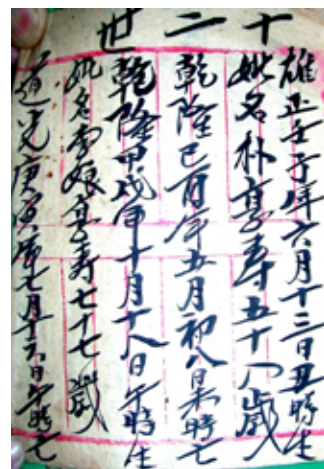 十二世
雍正壬子年六月十二日丑時生
妣名朴享寿五十八歲
乾隆己酉年五月初八日未時亡
乾隆甲戌年十月十八日午時生
妣名李娘享寿七十七歲
道光庚寅年七月十六日午時亡